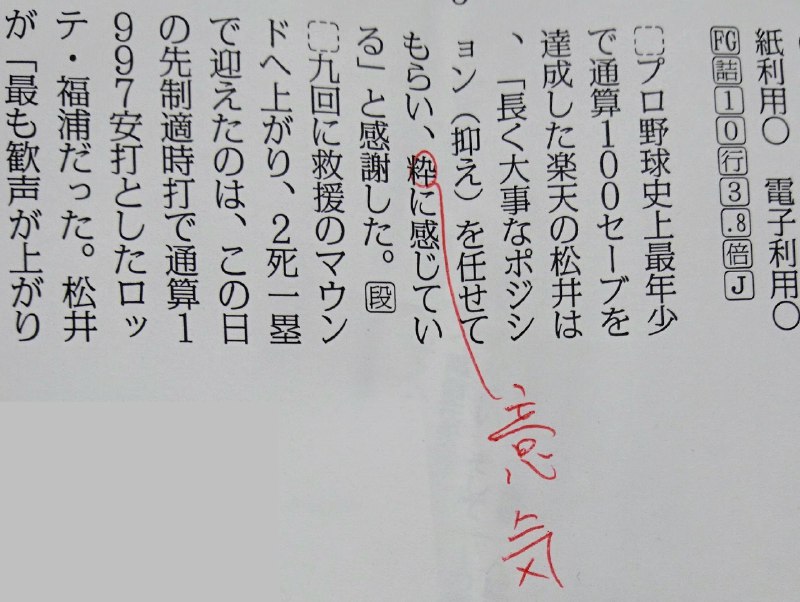 紙利用〇　電子利用〇
FG詰10行3.8倍J
プロ野球史上最年少
で通算100セーブを
達成した楽天の松井は
、「長く大事なポジシ
ョン（抑え）を任せて
もらい、粋に感じてい
る」と感謝した。段
九回に救援のマウン
ドへ上がり、2死一塁
で迎えたのは、この日
の先制適時打で通算1
997安打としたロッ
テ・福浦だった。松井
が「最も歓声が上がり
意気